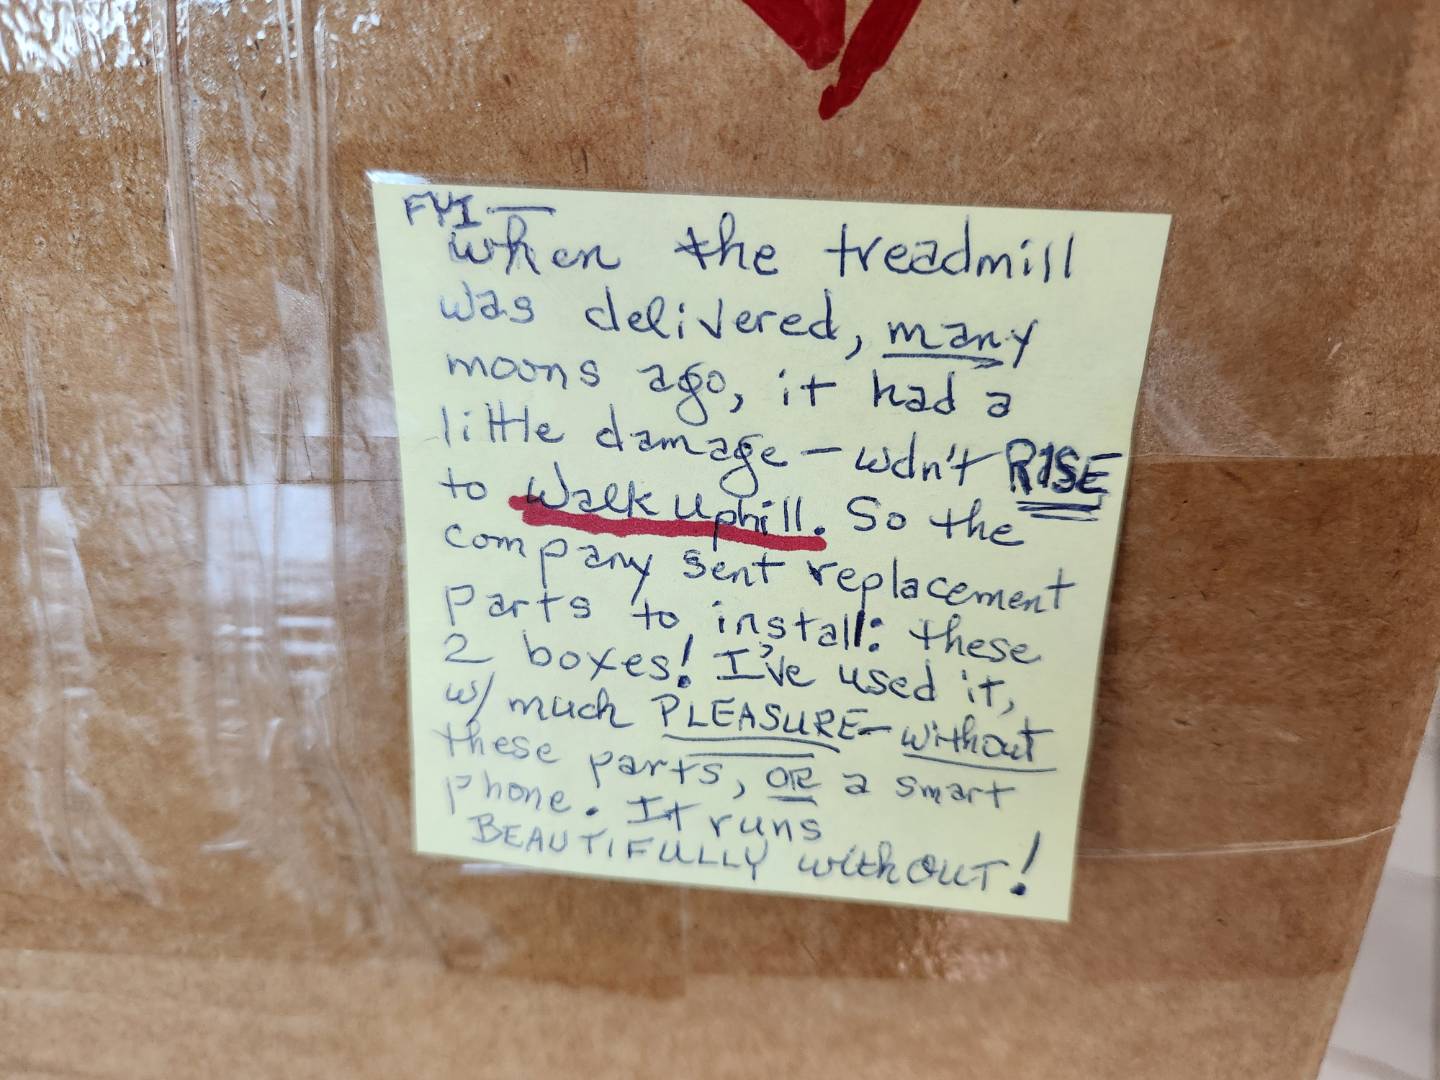 FYI —
When the treadmill
was delivered, many
moons ago, it had a
little damage — wdn't RISE
to Walk uphill. So the
company sent replacement
parts to install: these
2 boxes! I've used it,
w/ much PLEASURE — without
these parts, OR a smart
phone. It runs
BEAUTIFULLY withOUT!